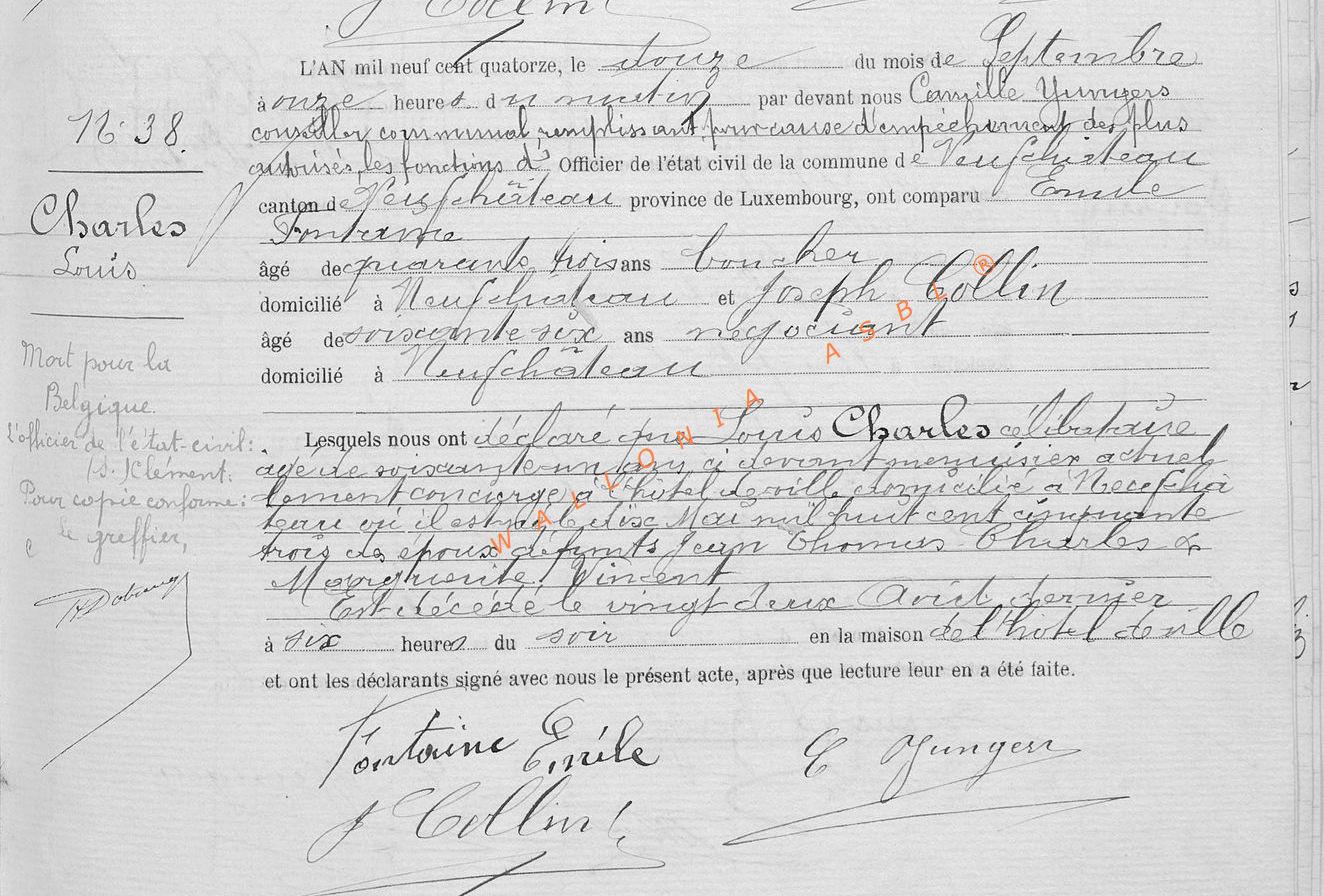 J Collin
L'AN mil neuf cent quatorze, le douze du mois de Septembre
à onze heures du matin par devant nous Camille Yungers
conseiller communal, remplissant, pour cause d'empêchement des plus
autorisés, les fonctions d' Officier de l'état civil de la commune de Neufchâteau
canton de Neufchâteau province de Luxembourg, ont comparu Emile
Fontaine
âgé de quarante trois ans boucher
domicilié à Neufchateau et Joseph Collin
âgé de soixante six ans négociant
domicilié à Neufchâteau
Lesquels nous ont déclaré que Louis Charles célibataire
agé de soixante-un ans ci devant menuisier actuel
lement concierge à l'hôtel de ville domicilié à Neufchâ
teau où il est né le dix Mai mil huit cent cinquante
trois des époux défunts Jean Thomas Charles &
Marguerite Vincent
Est décédé le vingt deux Août dernier
à six heures du soir en la maison de l'hôtel de ville
et ont les déclarants signé avec nous le présent acte, après que lecture leur en a été faite.
Fontaine Emile
C Yungers
J Collin
N° 38.
Charles
Louis
Mort pour la
Belgique.
L'officier de l'état-civil:
(s.) Clement:
Pour copie conforme:
le greffier,
WALLONIA ASBL ®